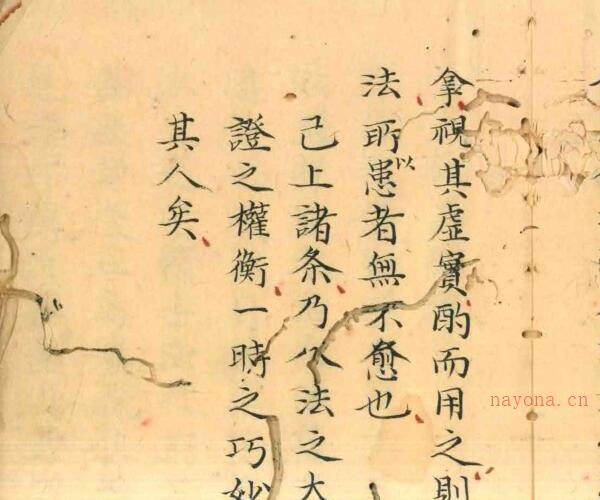 拿視其虛實酌而用之則
法耶以患者無不愈也
己上諸条乃八法之大
證之權衡一時之巧妙
其人矣
nayona.cn